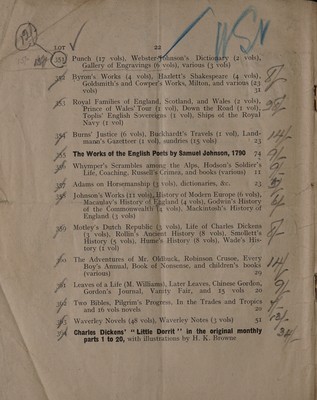 LOT
22
351 Punch (17 vols), Webster Johnson's Dictionary (2 vols),
Gallery of Engravings (6 vols), various (3 vols)
352 Byron's Works (4 vols), Hazlett's Shakespeare (4 vols),
Goldsmith's and Cowper's Works, Milton, and various (23
vols) 31
353 Royal Families of England, Scotland, and Wales (2 vols),
Prince of Wales' Tour (1 vol), Down the Road (1 vol),
Toplis' English Sovereigns (1 vol), Ships of the Royal
Navy (1 vol)
354 Burns' Justice (6 vols), Buckhardt's Travels (1 vol), Land-
mann's Gazetteer (1 vol), sundries (15 vols) 23
355 The Works of the English Poets by Samuel Johnson, 1790 74
356 Whymper's Scrambles among the Alps, Hodson's Soldier's
Life, Coaching, Russell's Crimea, and books (various) 11
357 Adams on Horsemanship (3 vols), dictionaries, &c. 23
358 Johnson's Works (11 vols), History of Modern Europe (6 vols),
Macaulay's History of England (4 vols), Godwin's History
of the Commonwealth (4 vols), Mackintosh's History of
England (3 vols)
359 Motley's Dutch Republic (3 vols), Life of Charles Dickens
(3 vols), Rollin's Ancient History (8 vols), Smollett's
History (5 vols), Hume's History (8 vols), Wade's His-
tory (1 vol)
360 The Adventures of Mr. Oldbuck, Robinson Crusoe, Every
Boy's Annual, Book of Nonsense, and children's books
(various) 29
361 Leaves of a Life (M. Williams), Later Leaves, Chinese Gordon,
Gordon's Journal, Vanity Fair, and 25 vols 20
362 Two Bibles, Pilgrim's Progress, In the Trades and Tropics
and 16 vols novels 20
363 Waverley Novels (48 vols), Waverley Notes (3 vols) 51
364 Charles Dickens' "Little Dorrit" in the original monthly
parts 1 to 20, with illustrations by H. K. Browne
14/-